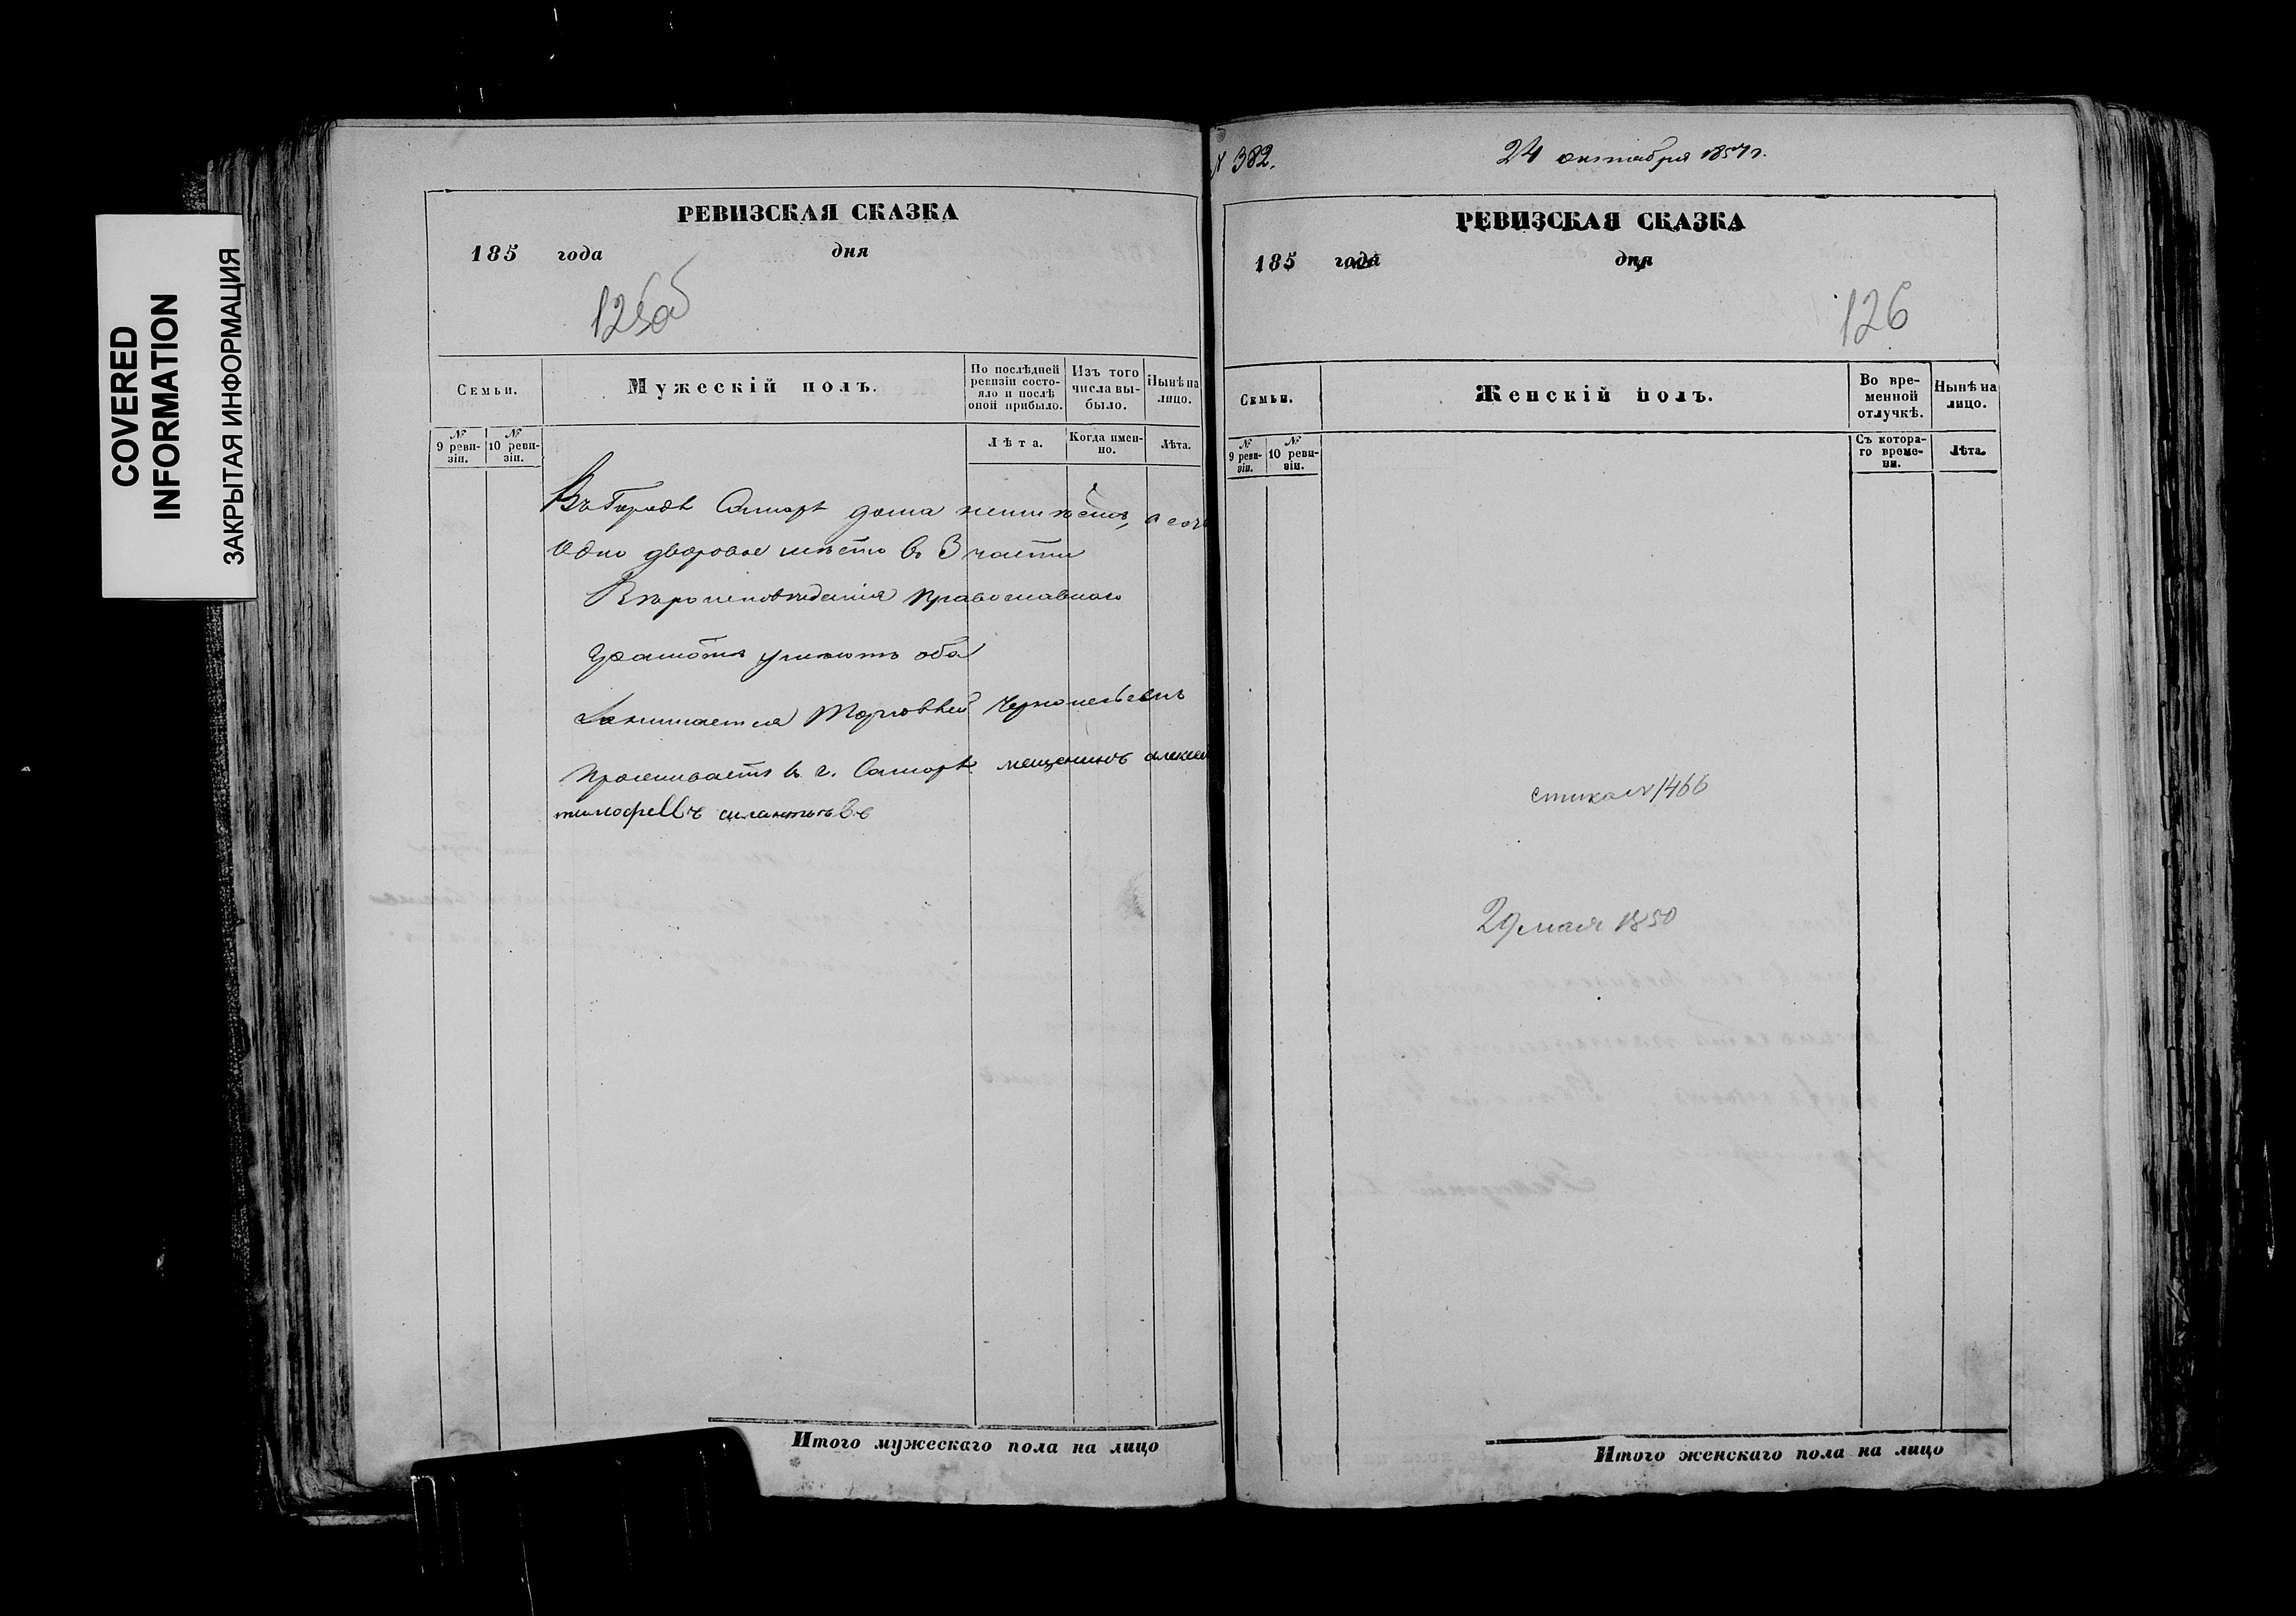 COVERED
INFORMATION
ЗАКРЫТАЯ ИНФОРМАЦИЯ
РЕВИЗСКАЯ СКАЗКА
185 года дня
Семьи.
Мужескій полъ.
По послѣдней
ревизіи состо-
яло и послѣ
оной прибыло.
Изъ того
числа вы-
было.
Нынѣ на
лицо.
№
9 реви-
зіи.
№
10 реви-
зіи.
Лѣта.
Когда имен-
но.
Лѣта.
Въ Городѣ Самарѣ дома неимѣетъ, а
Одно дворовое место въ 3 части
Вѣроисповѣданія православнаго
Грамотѣ умѣютъ оба
Занимается Торговлей
проживаетъ въ г. Самарѣ мещенинъ алексей
тимофеевъ
Итого мужескаго пола на лицо
№ 382.
24 октября 1857 г.
РЕВИЗСКАЯ СКАЗКА
185 года дня
126
Семьи.
Женскій полъ.
Во вре-
менной
отлучкѣ.
Нынѣ на
лицо.
№
9 реви-
зіи.
№
10 реви-
зіи.
Съ котора-
го време-
ни.
Лѣта.
1466
29 мая 1850
Итого женскаго пола на лицо